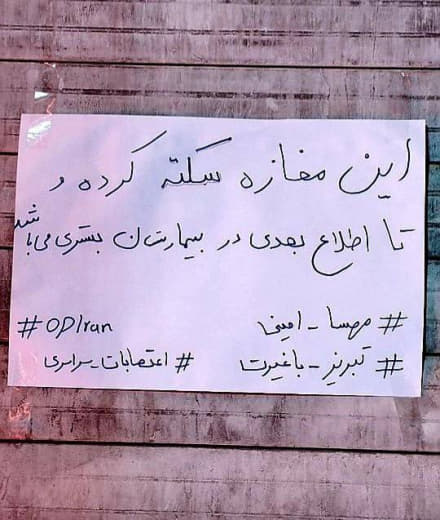 این مغازه سکته کرده و
تا اطلاع بعدی در بیمارستان بستری می باشد
#مهسا_امینی
#OpIran
#تبریز_باغیرت
#اعتصابات_سراسری